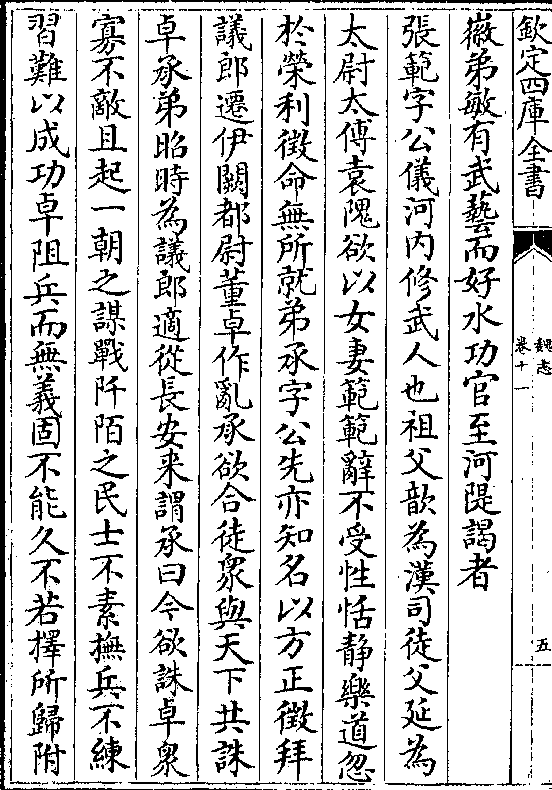 欽定四庫全書
魏志
卷十一
五
徽弟敏有武藝而好水功官至河隄謁者
張範字公儀河内修武人也祖父歆為漢司徒父延為
太尉太傅袁隗欲以女妻範範辭不受性恬静樂道忽
於榮利徵命無所就弟承字公先亦知名以方正徵拜
議郎遷伊闕都尉董卓作亂承欲合徒衆與天下共誅
卓承弟昭時為議郎適從長安来謂承曰今欲誅卓衆
寡不敵且起一朝之謀戰阡陌之民士不素撫兵不練
習難以成功卓阻兵而無義固不能久不若擇所歸附